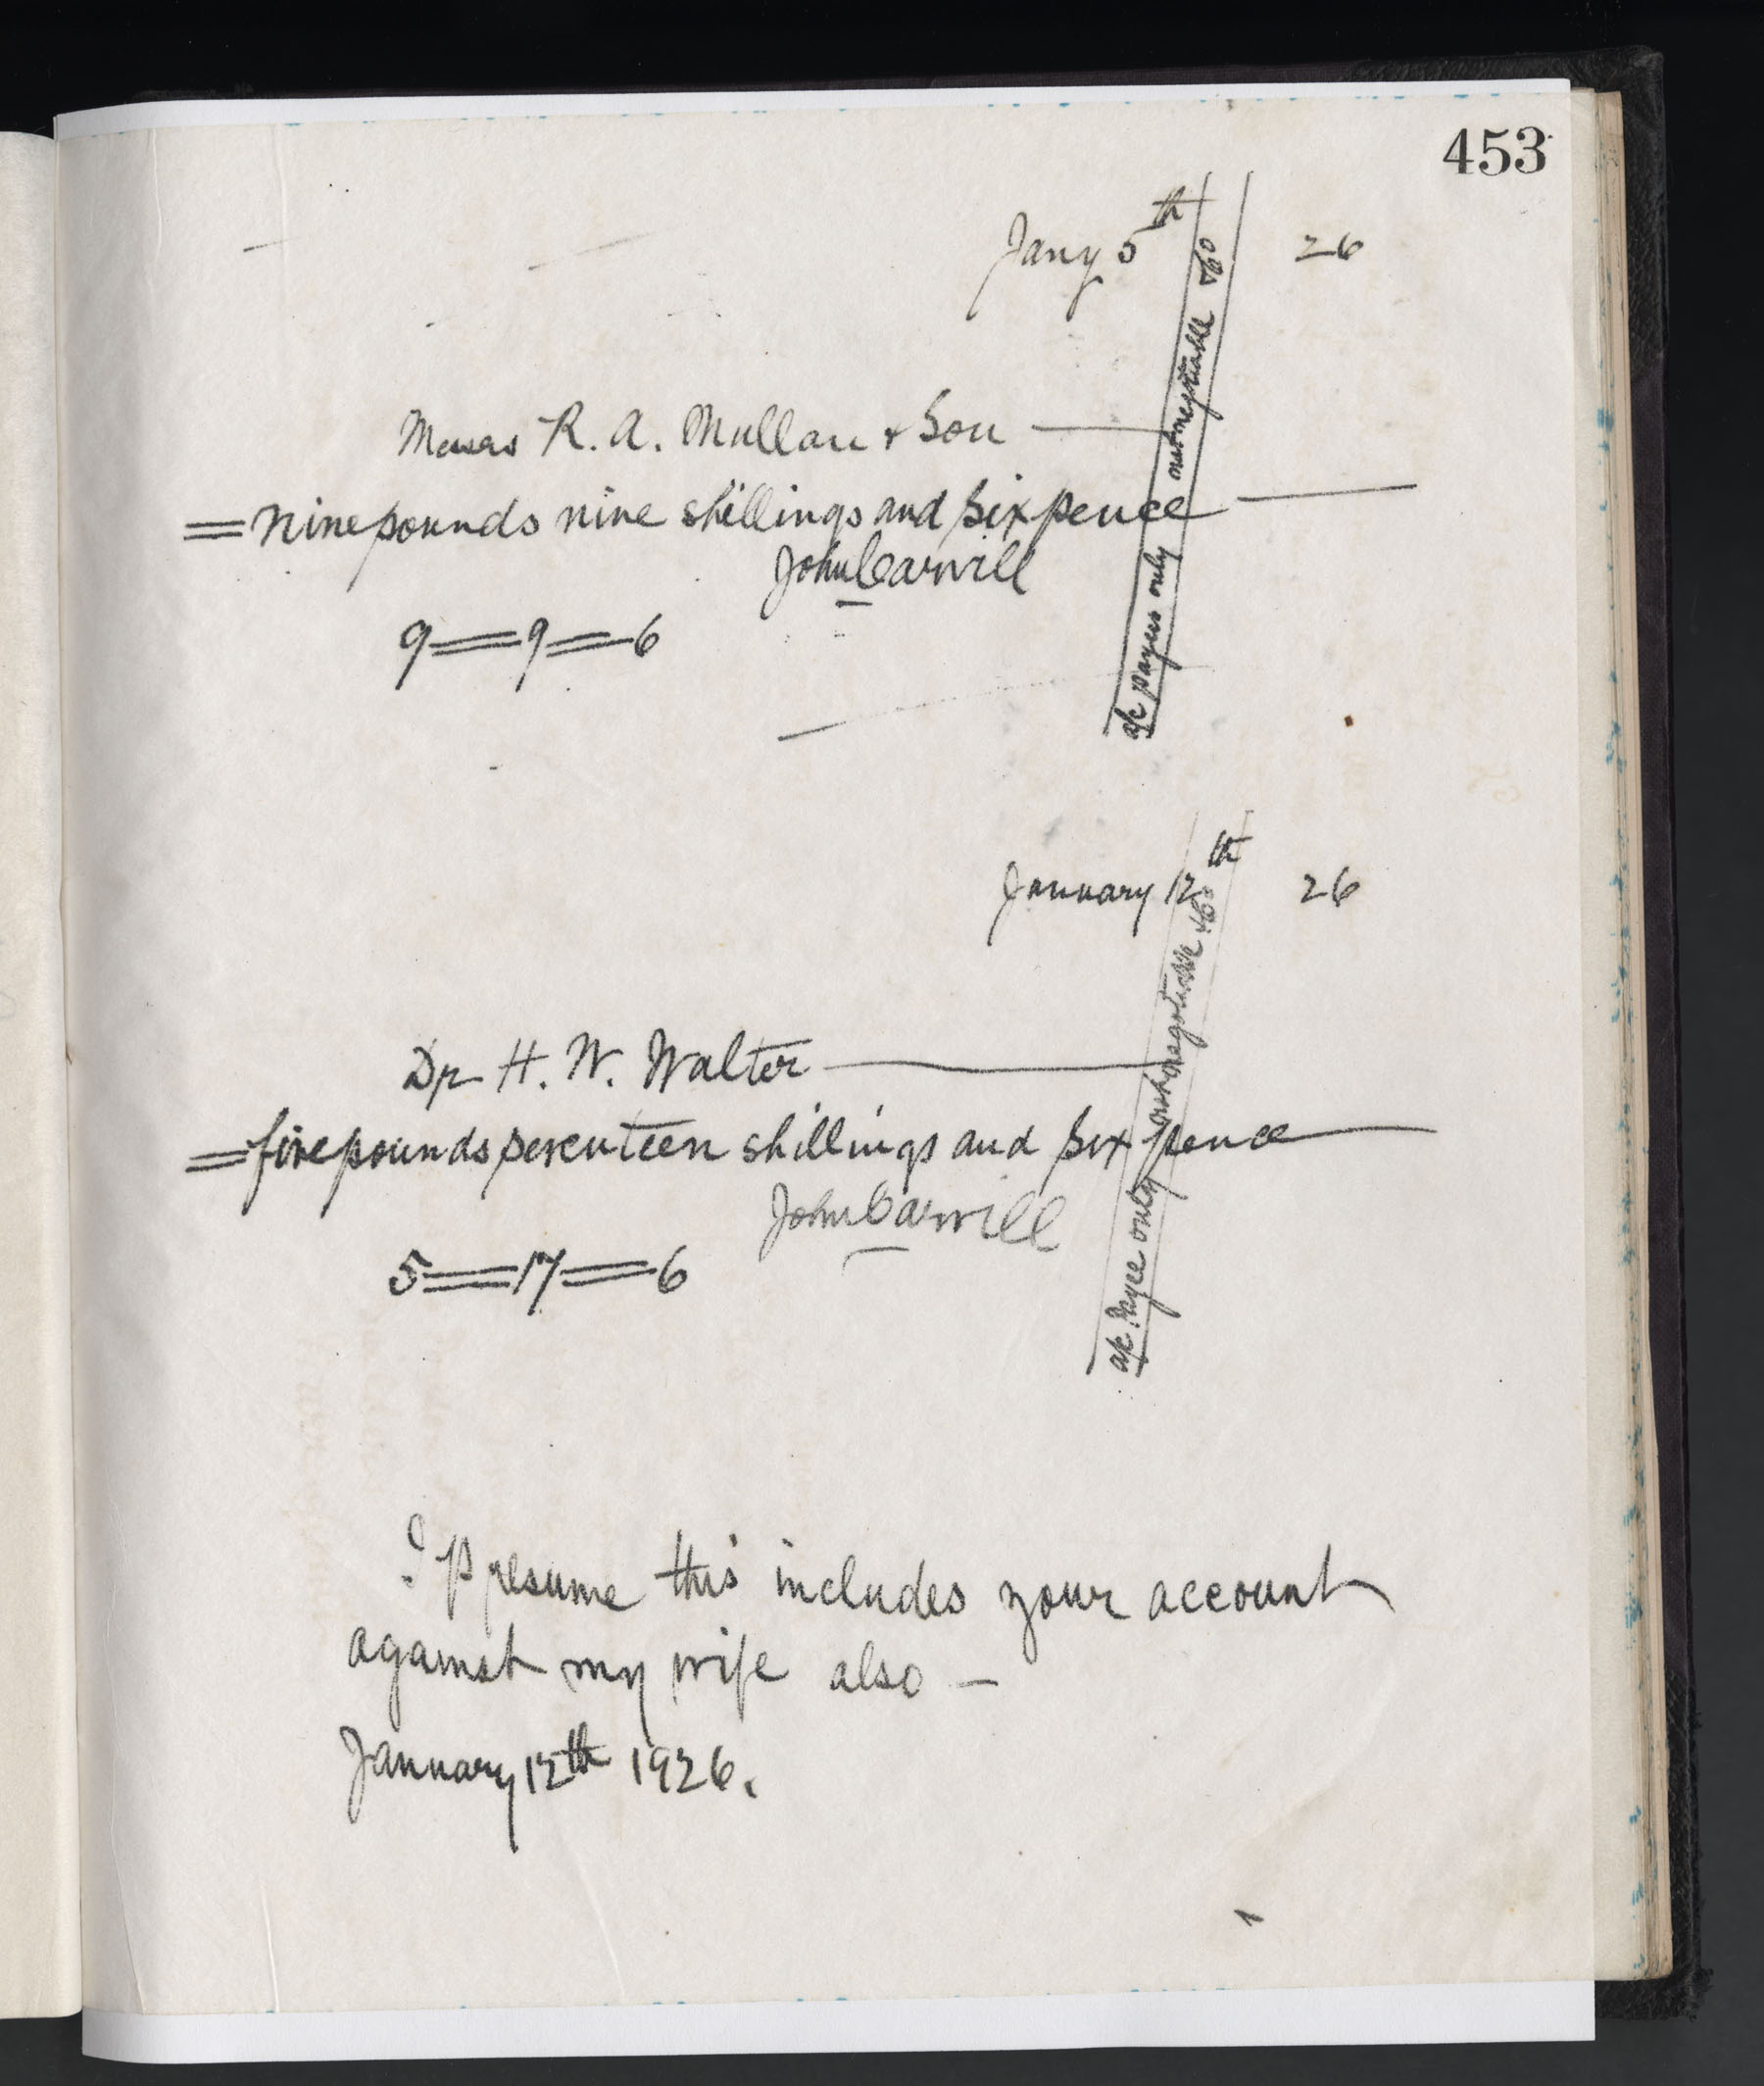 453
Jany 5th 26
Messrs R. A. Mullan & Son
= nine pounds nine shillings and sixpence
John Carvill
9=9=6
a/c payees only not negotiable & Co
January 12th 26
Dr H. W. Walter
= five pounds seventeen shillings and six pence
John Carvill
5=17=6
a/c Payee only not negotiable & Co
I Presume this includes your account
against my wife also —
January 12th 1926.